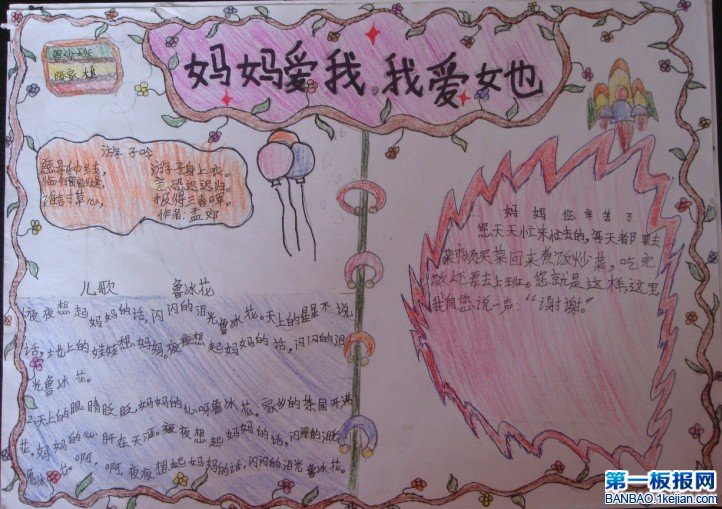 妈妈爱我,我爱她
游子吟
慈母手中线, 游子身上衣。
临行密密缝, 意恐迟迟归。
报得三春晖。
作者:孟郊
妈妈您辛苦了
您天天忙来忙去的,每天都要去
菜市场买菜回来煮饭炒菜,吃完
饭还要去上班。您就是这样,这里
我向您说一声:“谢谢。”
儿歌 鲁冰花
1.夜夜想起妈妈的话,闪闪的泪光鲁冰花。天上的星星不说
话,地上的娃娃想妈妈。夜夜想起妈妈的话,闪闪的泪
光鲁冰花。
2.天上的眼睛眨眨,妈妈的心呀鲁冰花。家乡的茶园开满
花,妈妈的心肝在天涯。夜夜想起妈妈的话,闪闪的泪光
鲁冰花。啊,啊,夜夜想起妈妈的话,闪闪的泪光鲁冰花。
第一板报网
BANBAO.1kejian.com